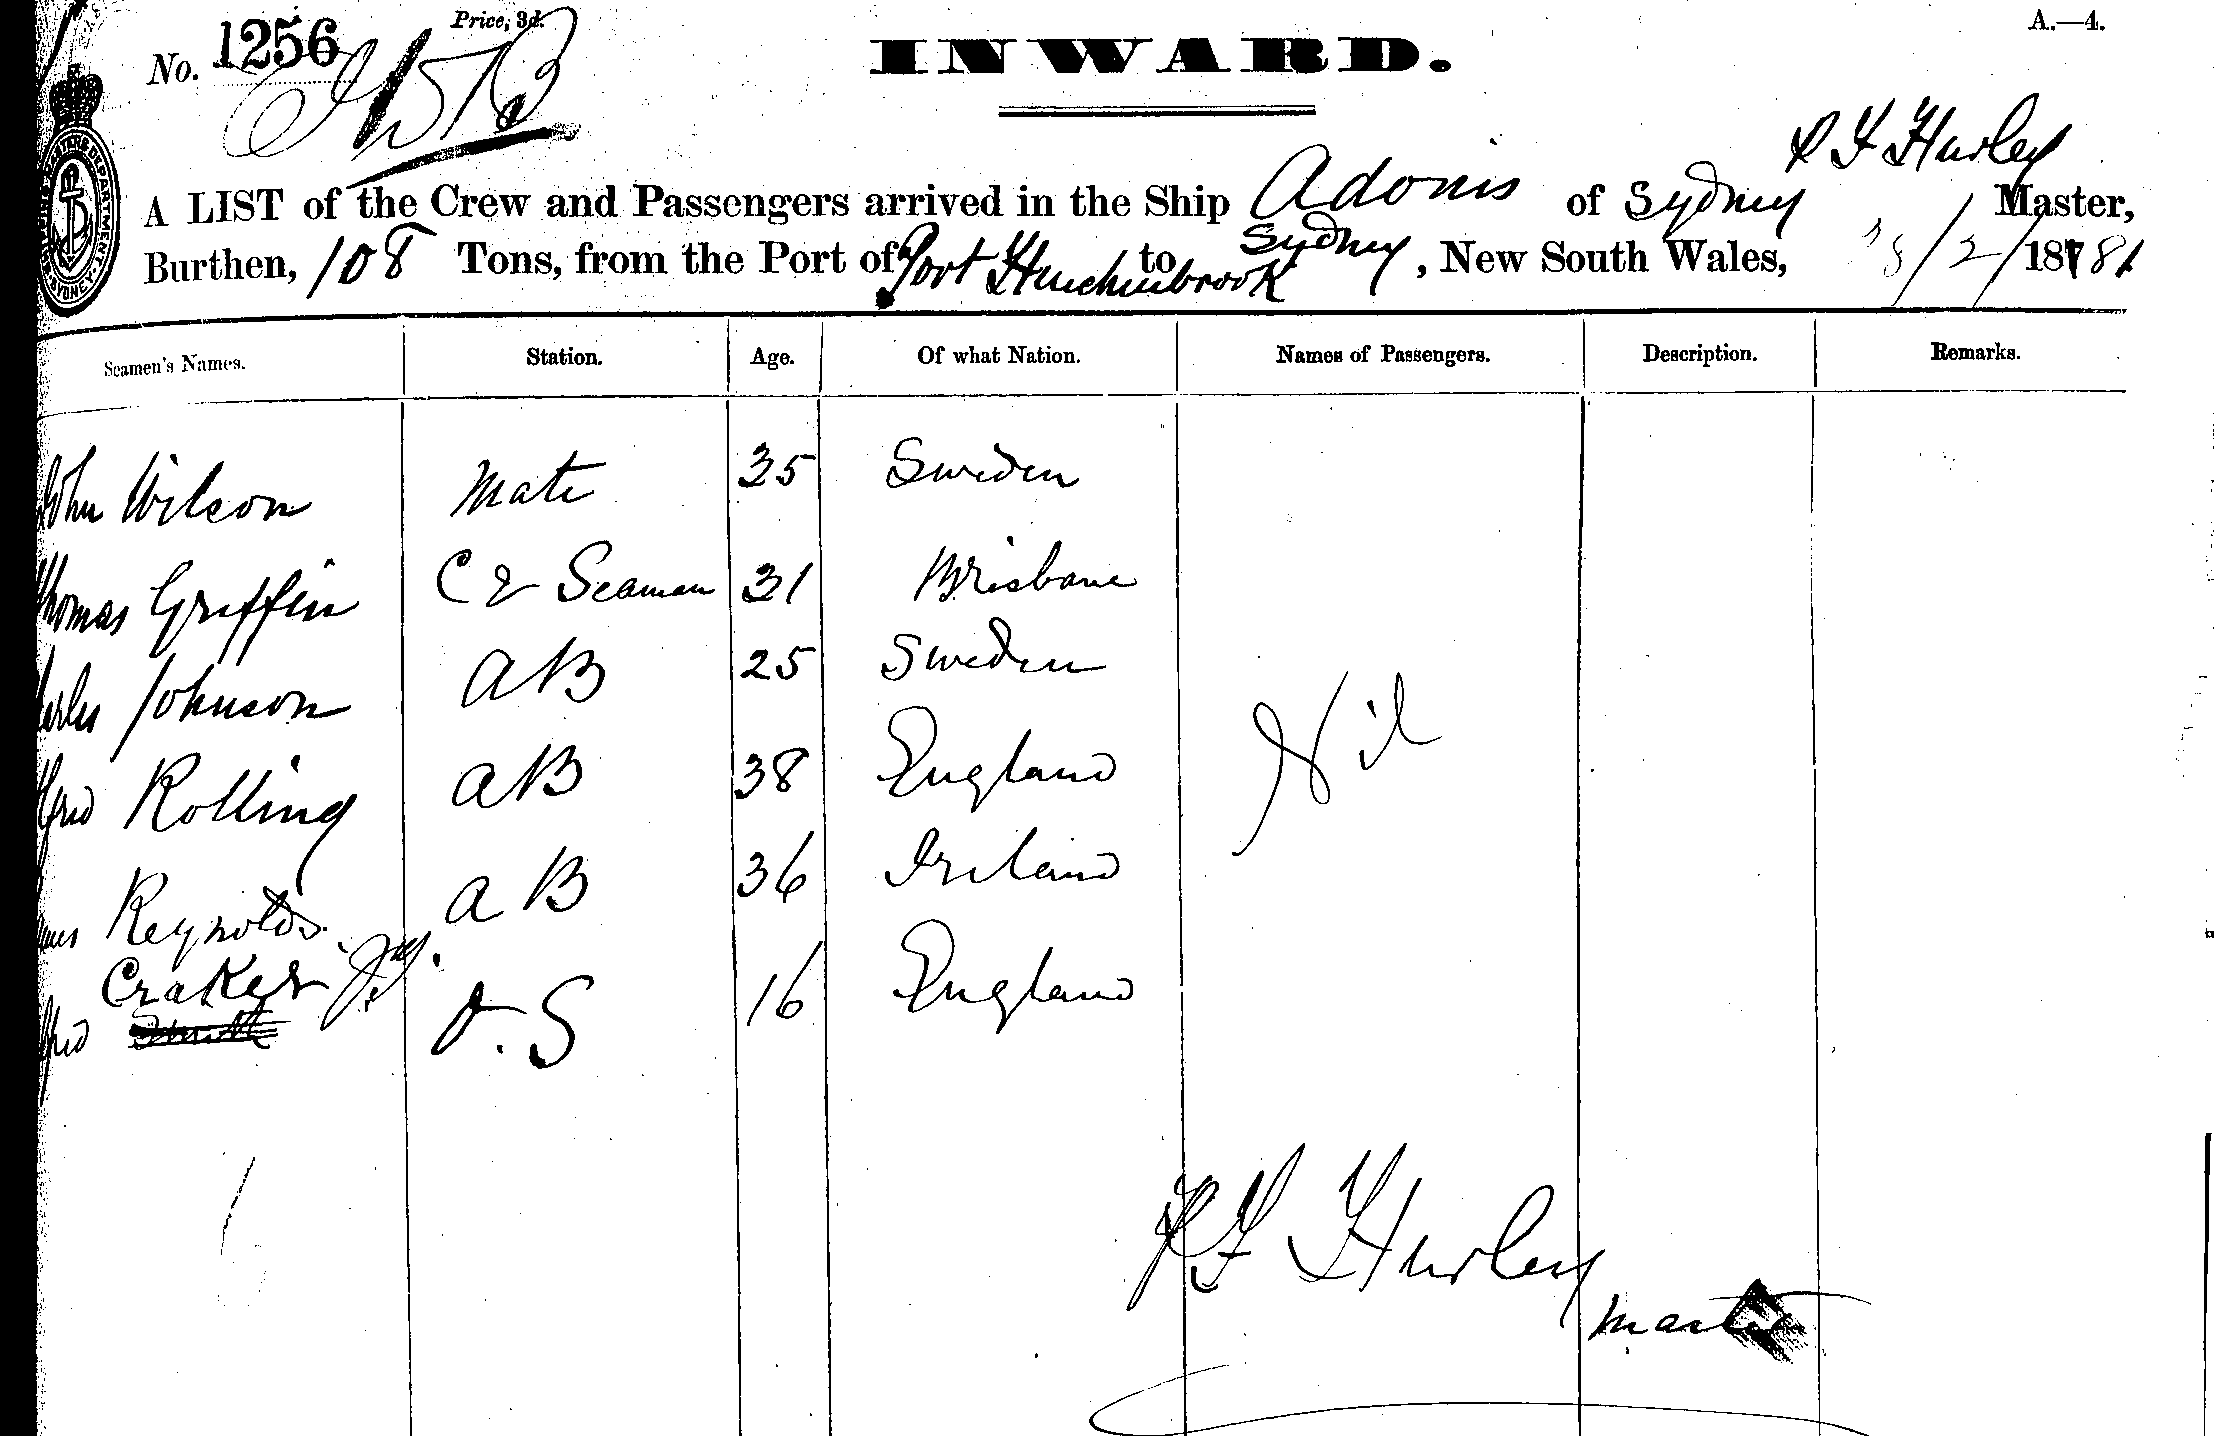 No. 1256
Price, 3d.
A.—4.
INWARD.
R F Hurley
A LIST of the Crew and Passengers arrived in the Ship Adonis of Sydney Master,
Burthen, 108 Tons, from the Port of Port Hinchinbrook to Sydney, New South Wales, 28/2/1881
Seamen's Names. Station. Age. Of what Nation. Names of Passengers. Description. Remarks.
John Wilson Mate 35 Sweden
Thomas Griffin C & Seaman 31 Brisbane
Charles Johnson AB 25 Sweden
Rolling AB 38 England
Nil
Reynolds AB 36 Ireland
Craker
Smith O.S 16 England
R F Hurley
Master